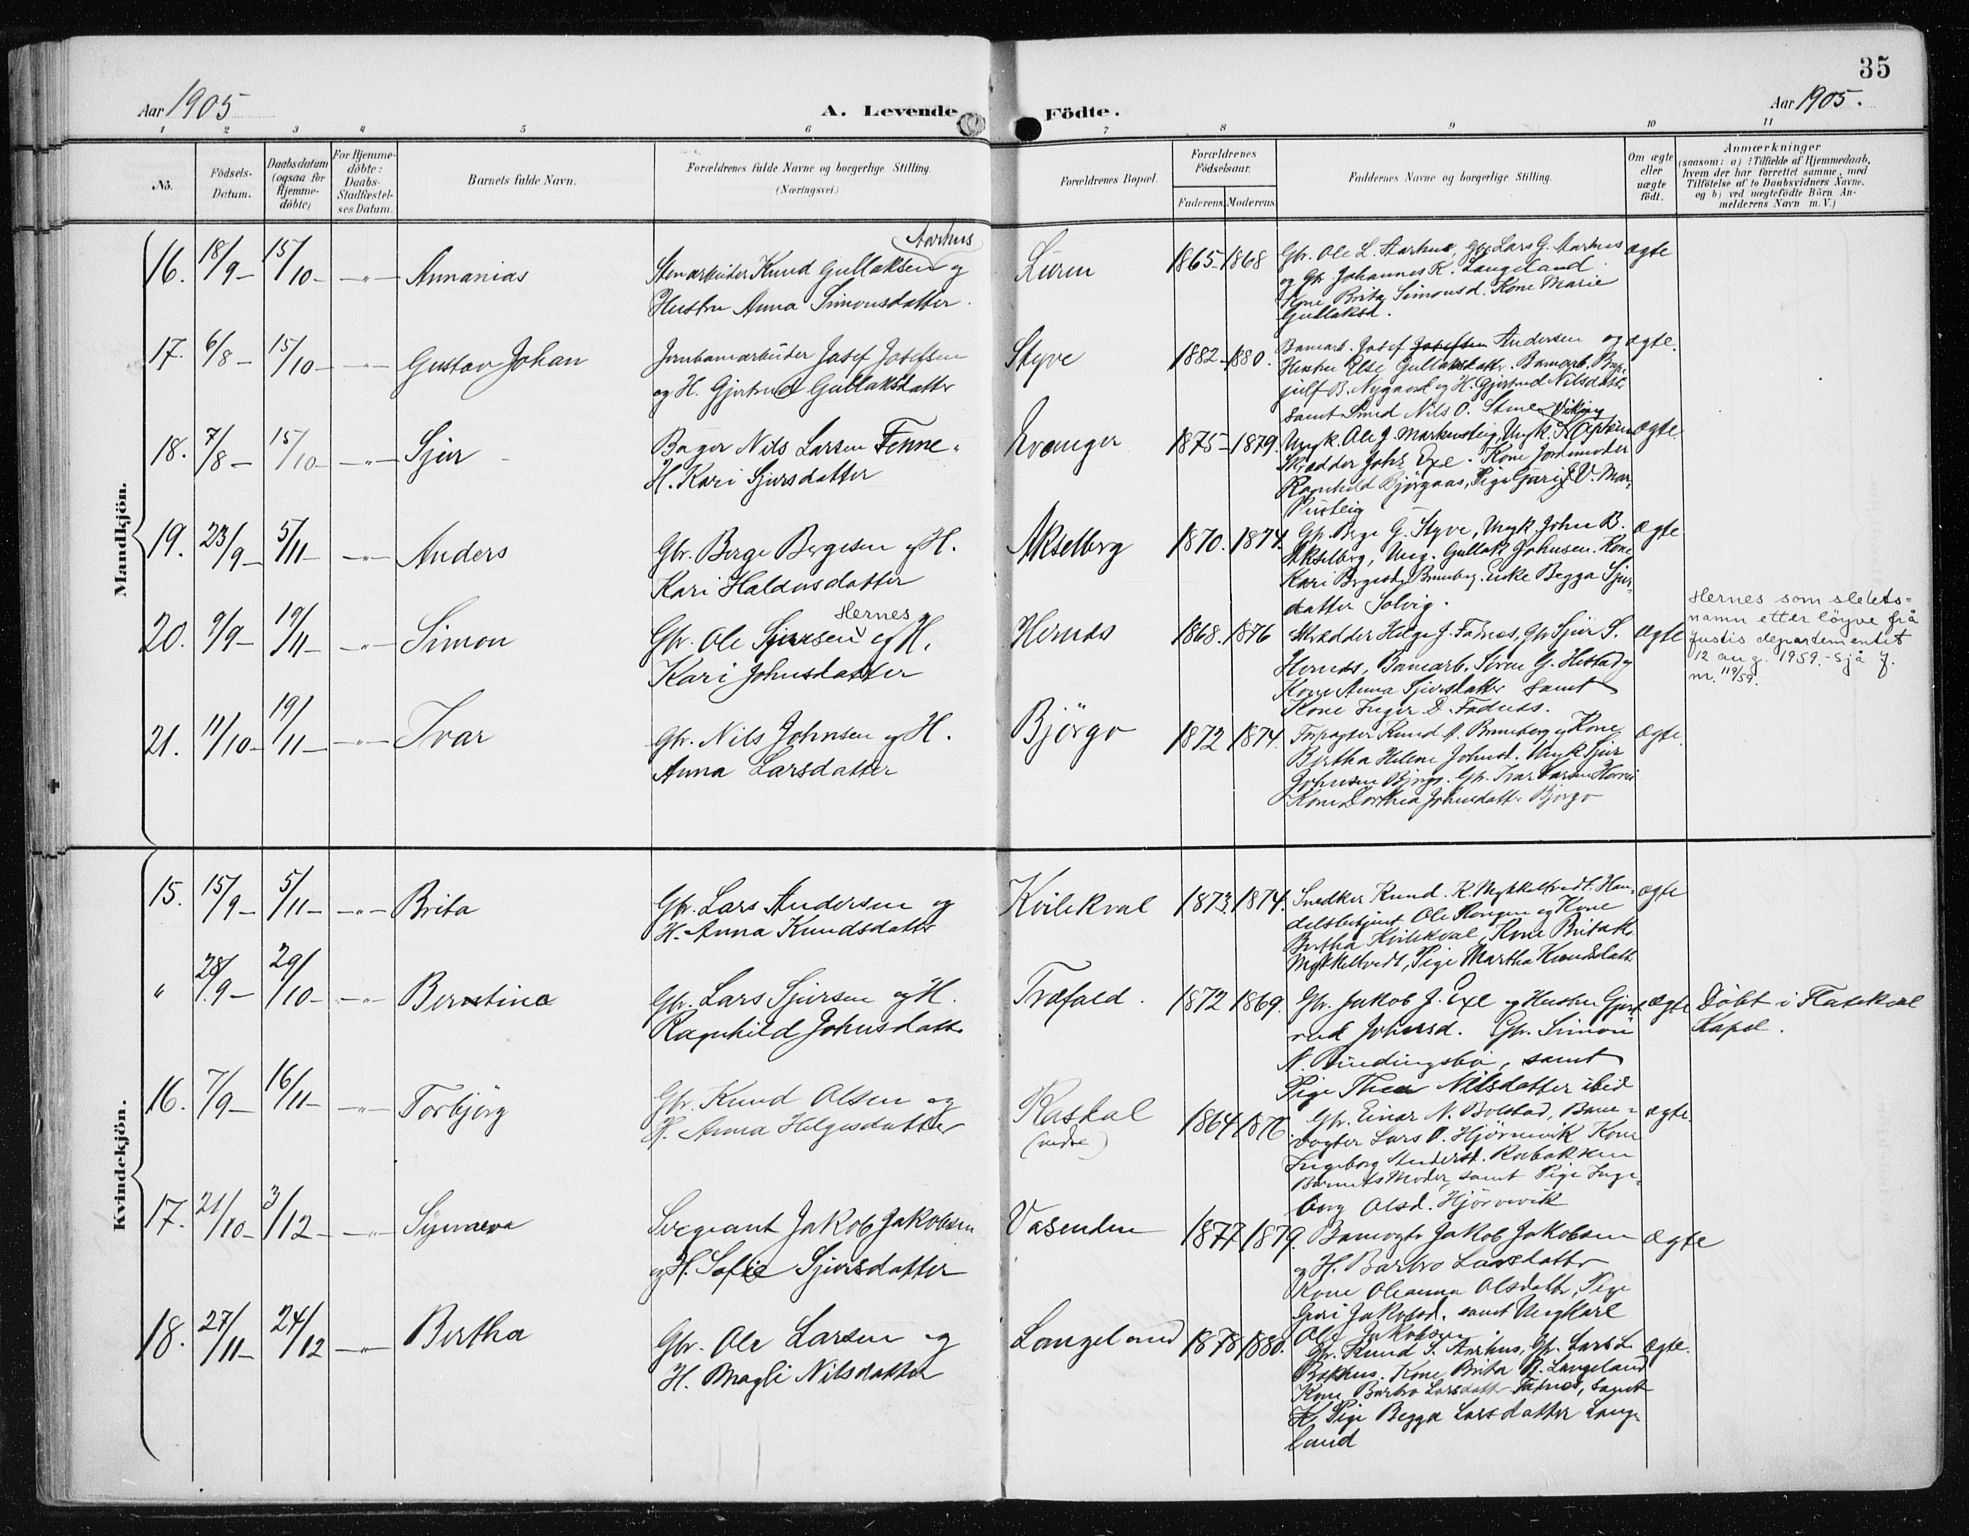 35
Aar 1905
A. Levende Födte.
Aar 1905.
1 2 3 4 5 6 7 8 9 10 11
No.
Födsels-Datum.
Daabsdatum (ogsaa for Hjemme-döbte)
For Hjemme-döbte: Daabs-Stadfæstel-ses Datum.
Barnets fulde Navn.
Forældrenes fulde Navne og borgerlige Stilling.
(Næringsvei.)
Forældrenes Bopæl.
Forældrenes Födselsaar.
Faderens. Moderens.
Faddernes Navne og borgerlig Stilling.
Om ægte eller uægte födt.
Anmærkninger
(saasom: a) i Tilfælde af Hjemmedaab,
hvem der har forrettet samme, med
Tilföielse af to Daabsvidners Navne,
og b) ved uægtefödte Börn An-
melderens Navn m. V.)
Mandkjön.
16. 18/9 15/10 Annanias
Aarhus
Stenarbeider Knud Gullaksen og
Hustru Anna Simonsdatter.
1865-1868
Gbr. Ole L. Aarhus, Gbr Lars G. Aarhus
og Gbr. Johannes K. Langeland.
Kone Brita Simonsd. Kone Marie
Gullaksd.
ægte
17. 6/8 15/10 Gustav Johan
Jernbanearbeider Josef Josefsen
og H. Gjertrud Gullaksdatter
Styve 1882-1880.
Banearb. Josef Josefsen Andersen og
Hustru Else Gullaksdatter. Banearb.
B. Nygaard og H. Gjertrud Nilsdatt.
samt Smed Nils O.
ægte.
18. 7/8 15/10 Sjur
Bager Nils Larsen Fenne.
H. Kari Sjursdatter
Evanger 1875-1879.
Viking
Ungk. Ole J. Markusteig, Ungk.
Skrædder Johs Exe. Kone Jordemoder
Ragnhild Björgaas, Pige Guri
ægte
19. 23/9 5/11 Anders
Gbr. Berge Bergesen og H.
Kari Haldorsdatter
Akselberg 1870. 1874.
Gbr. Berge G. Styve, Ungk. John B.
Akselberg, Ung. Gullak Johnsen. Kone
Kari Begga Sjur-
datter Solvig.
ægte
20. 9/9 19/11 Simon
Hernes
Gbr. Ole Sjursen og H.
Kari Johnsdatter
Hernes 1868. 1876
Skrædder Helge J. Fadnes, Gbr Sjur S.
Hernes, Banearb. Søren G. og
Kone Anna Sjursdatter samt
Kone Inger D. Fadnes.
ægte
Hernes som slekts-
namn etter löyve frå
Justisdepartementet
12 aug. 1959. - Sjå J.
nr. 119/59.
21. 11/10 19/11 Ivar
Gbr. Nils Johnsen og H.
Anna Larsdatter
Björgo 1872 1874.
Knud A. og Kone
Bertha Helene Johnsd. Ungk Sjur
Johnsen Björgo. Gbr. Ivar Larsen
Kone Dorthea Johnsdatter Björgo
ægte.
Kvindekjön.
15. 15/9 5/11 Brita
Gbr. Lars Andersen og
H. Anna Knudsdatter
Kvilekval 1873. 1874.
Snedker Knud K. Mykkeltvedt. Han-
delsbetjent Ole Rongen og Kone
Bertha Kvilekval, Kone Brita K.
Mykkeltvedt, Pige Martha Knudsdatt
ægte
" 28/9 29/10 Berntine
Gbr. Lars Sjursen og H.
Ragnhild Johnsdatter
Træfald. 1872 1869.
Gbr. Jakob J. Exe og Hustru Gjert
rud Johnsd. Gbr. Simon
N. samt
Pige Thea Nilsdatter ibid
ægte
Döbt i Flatekval
Kapel.
16. 7/9 16/11 Torbjörg
Gbr. Knud Olsen og
H. Anna Helgesdatter
Raskal
(nedre)
1864 1876.
Gbr. Einar N. Bolstad, Bane-
vogter Lars O. Hjörnevik Kone
Ingeborg Andersd.
Barnets Moder, samt Pige Inge-
borg Olsd. Hjörnevik
ægte.
17. 21/10 3/12 Synneva
Sergeant Jakob Jakobsen
og H. Sofie Sjursdatter
Vasenden 1877 1879.
Banevogter Jakob Jakobsen
og H. Barbro Larsdatter
Kone Oleanna Olsdatter, Pige
Guri Jakobsd. samt Ungkarl
Ole Jakobsen
ægte
18. 27/11 24/12 Bertha
Gbr. Ole Larsen og
H. Magli Nilsdatter
Langeland 1878 1880.
Gbr. Knud S. Aarhus, Gbr. Lars L.
Bakhus. Kone Brita N. Langeland
Kone Barbro Larsdatter Fadnes, samt
Pige Begga Larsdatter Lange-
land
ægte.